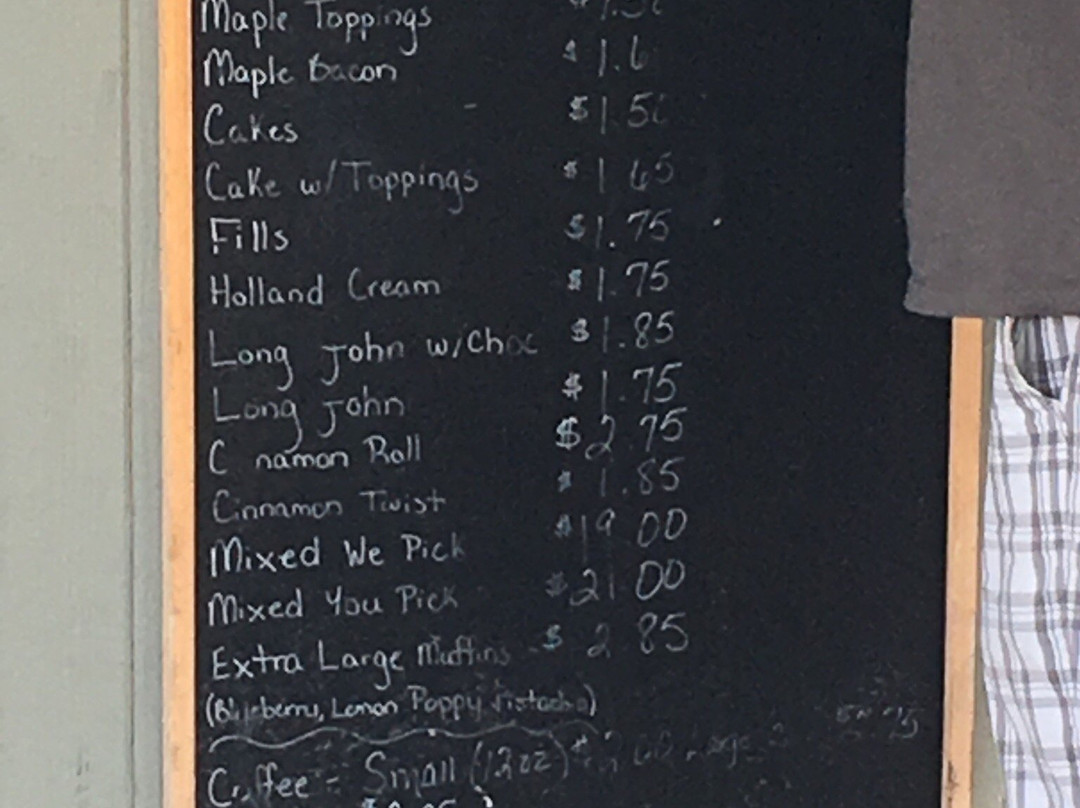 Maple Toppings
Maple Bacon $1.6
Cakes $1.50
Cake w/Toppings $1.65
Fills $1.75
Holland Cream $1.75
Long John w/Choc $1.85
Long John $1.75
C namon Roll $2.75
Cinnamon Twist $1.85
Mixed We Pick $19.00
Mixed You Pick $21.00
Extra Large Muffins $2.85
(Blueberry, Lemon Poppy, Pistachio)
Coffee - Small (12oz) Large